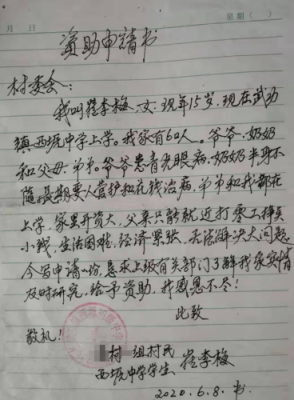 月 日 星期( )
资助申请书
村委会:
我叫崔李梅,女,现年15岁,现在武功
镇西塬中学上学。我家有6口人。爷爷、奶奶
和父母、弟弟。爷爷患青光眼病,奶奶半身不
随,长期要人管护和花钱治病,弟弟和我都在
上学,家里开资大,父亲只能就近打零工,挣点
小钱,生活困难,经济紧张,无法解决大问题,
今写申请一份,恳求上级有关部门了解我家实情
及时研究,给予资助,我感恩不尽!
此致
敬礼!
村 组村民
西塬中学学生 崔李梅
2020.6.8.书